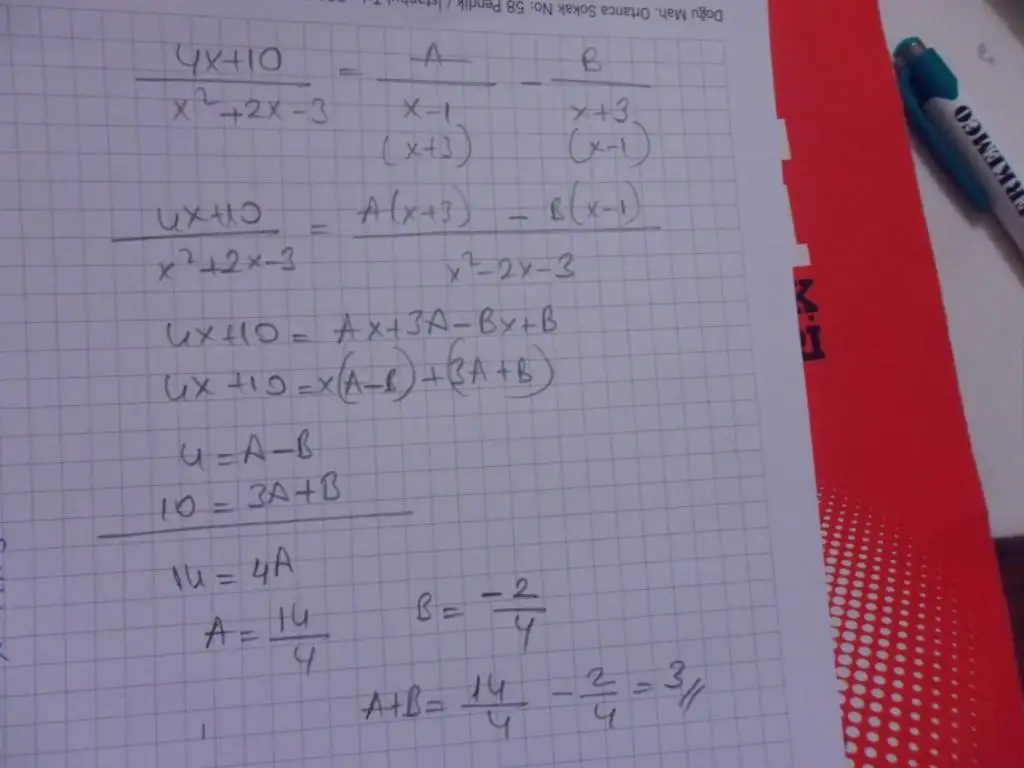 Doğu Mah. Ortanca Sokak No: 58 Pendik / İstanbul
4x+10 / x²+2x-3 = A / x-1 - B / x+3
(x+3) (x-1)
4x+10 / x²+2x-3 = A(x+3) - B(x-1) / x²-2x-3
4x+10 = Ax+3A-Bx+B
4x+10 = x(A-B)+(3A+B)
4 = A-B
10 = 3A+B
14 = 4A
A = 14/4 B = -2/4
A+B = 14/4 - 2/4 = 3//